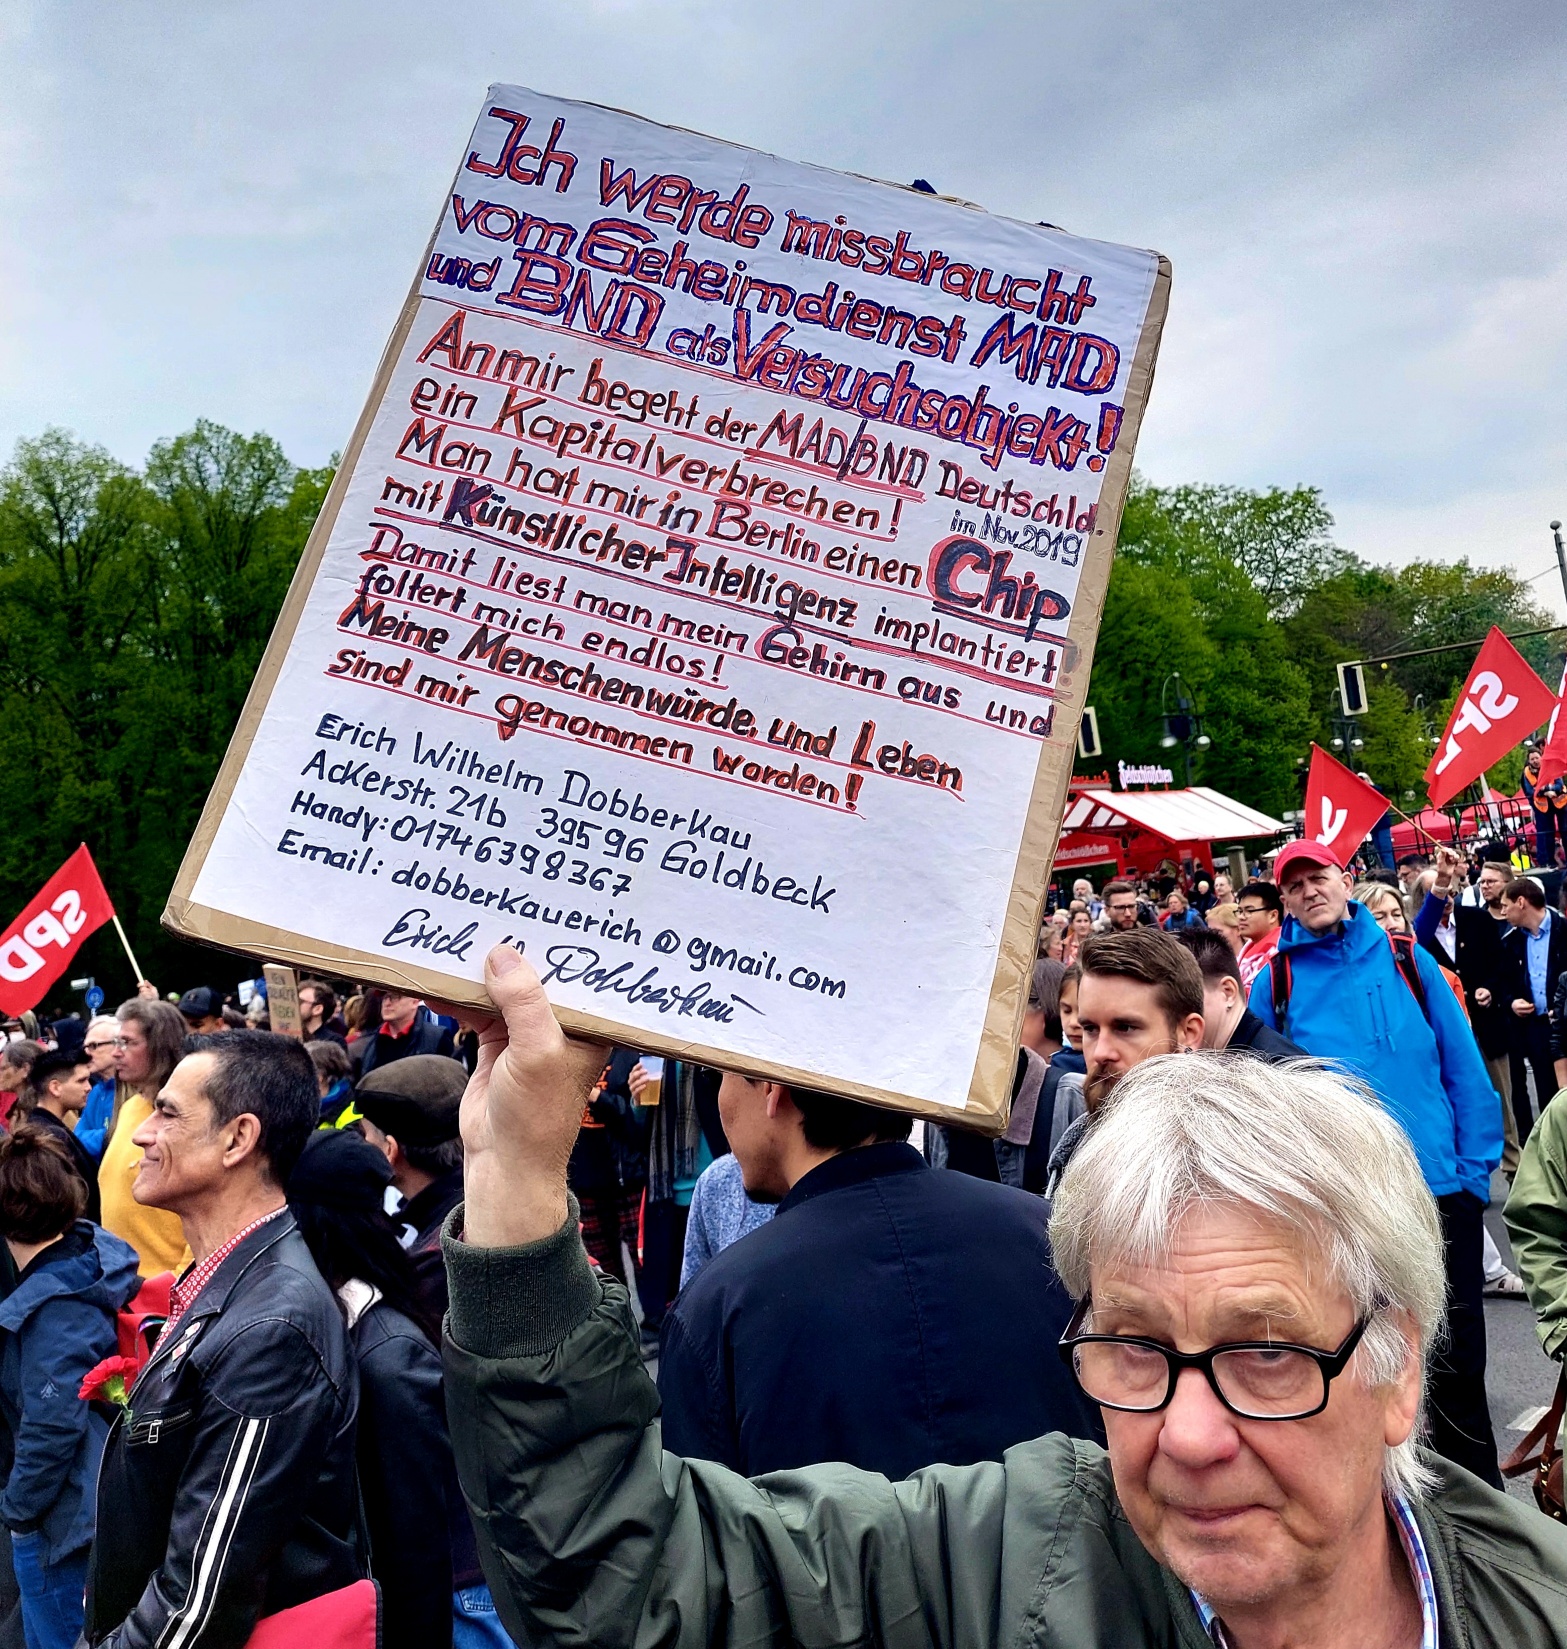 Ich werde missbraucht
vom Geheimdienst MAD
und BND als Versuchsobjekt!
An mir begeht der MAD/BND Deutschld.
ein Kapitalverbrechen!
im Nov. 2019
Man hat mir in Berlin einen Chip
mit Künstlicher Intelligenz implantiert!
Damit liest man mein Gehirn aus und
foltert mich endlos!
Meine Menschenwürde, und Leben
sind mir genommen worden!
Erich Wilhelm Dobberkau
Ackerstr. 21b 39596 Goldbeck
Handy: 01746398367
Email: dobberkauerich@gmail.com
Erich W. Dobberkau
SPD
SPD
Feldschlößchen